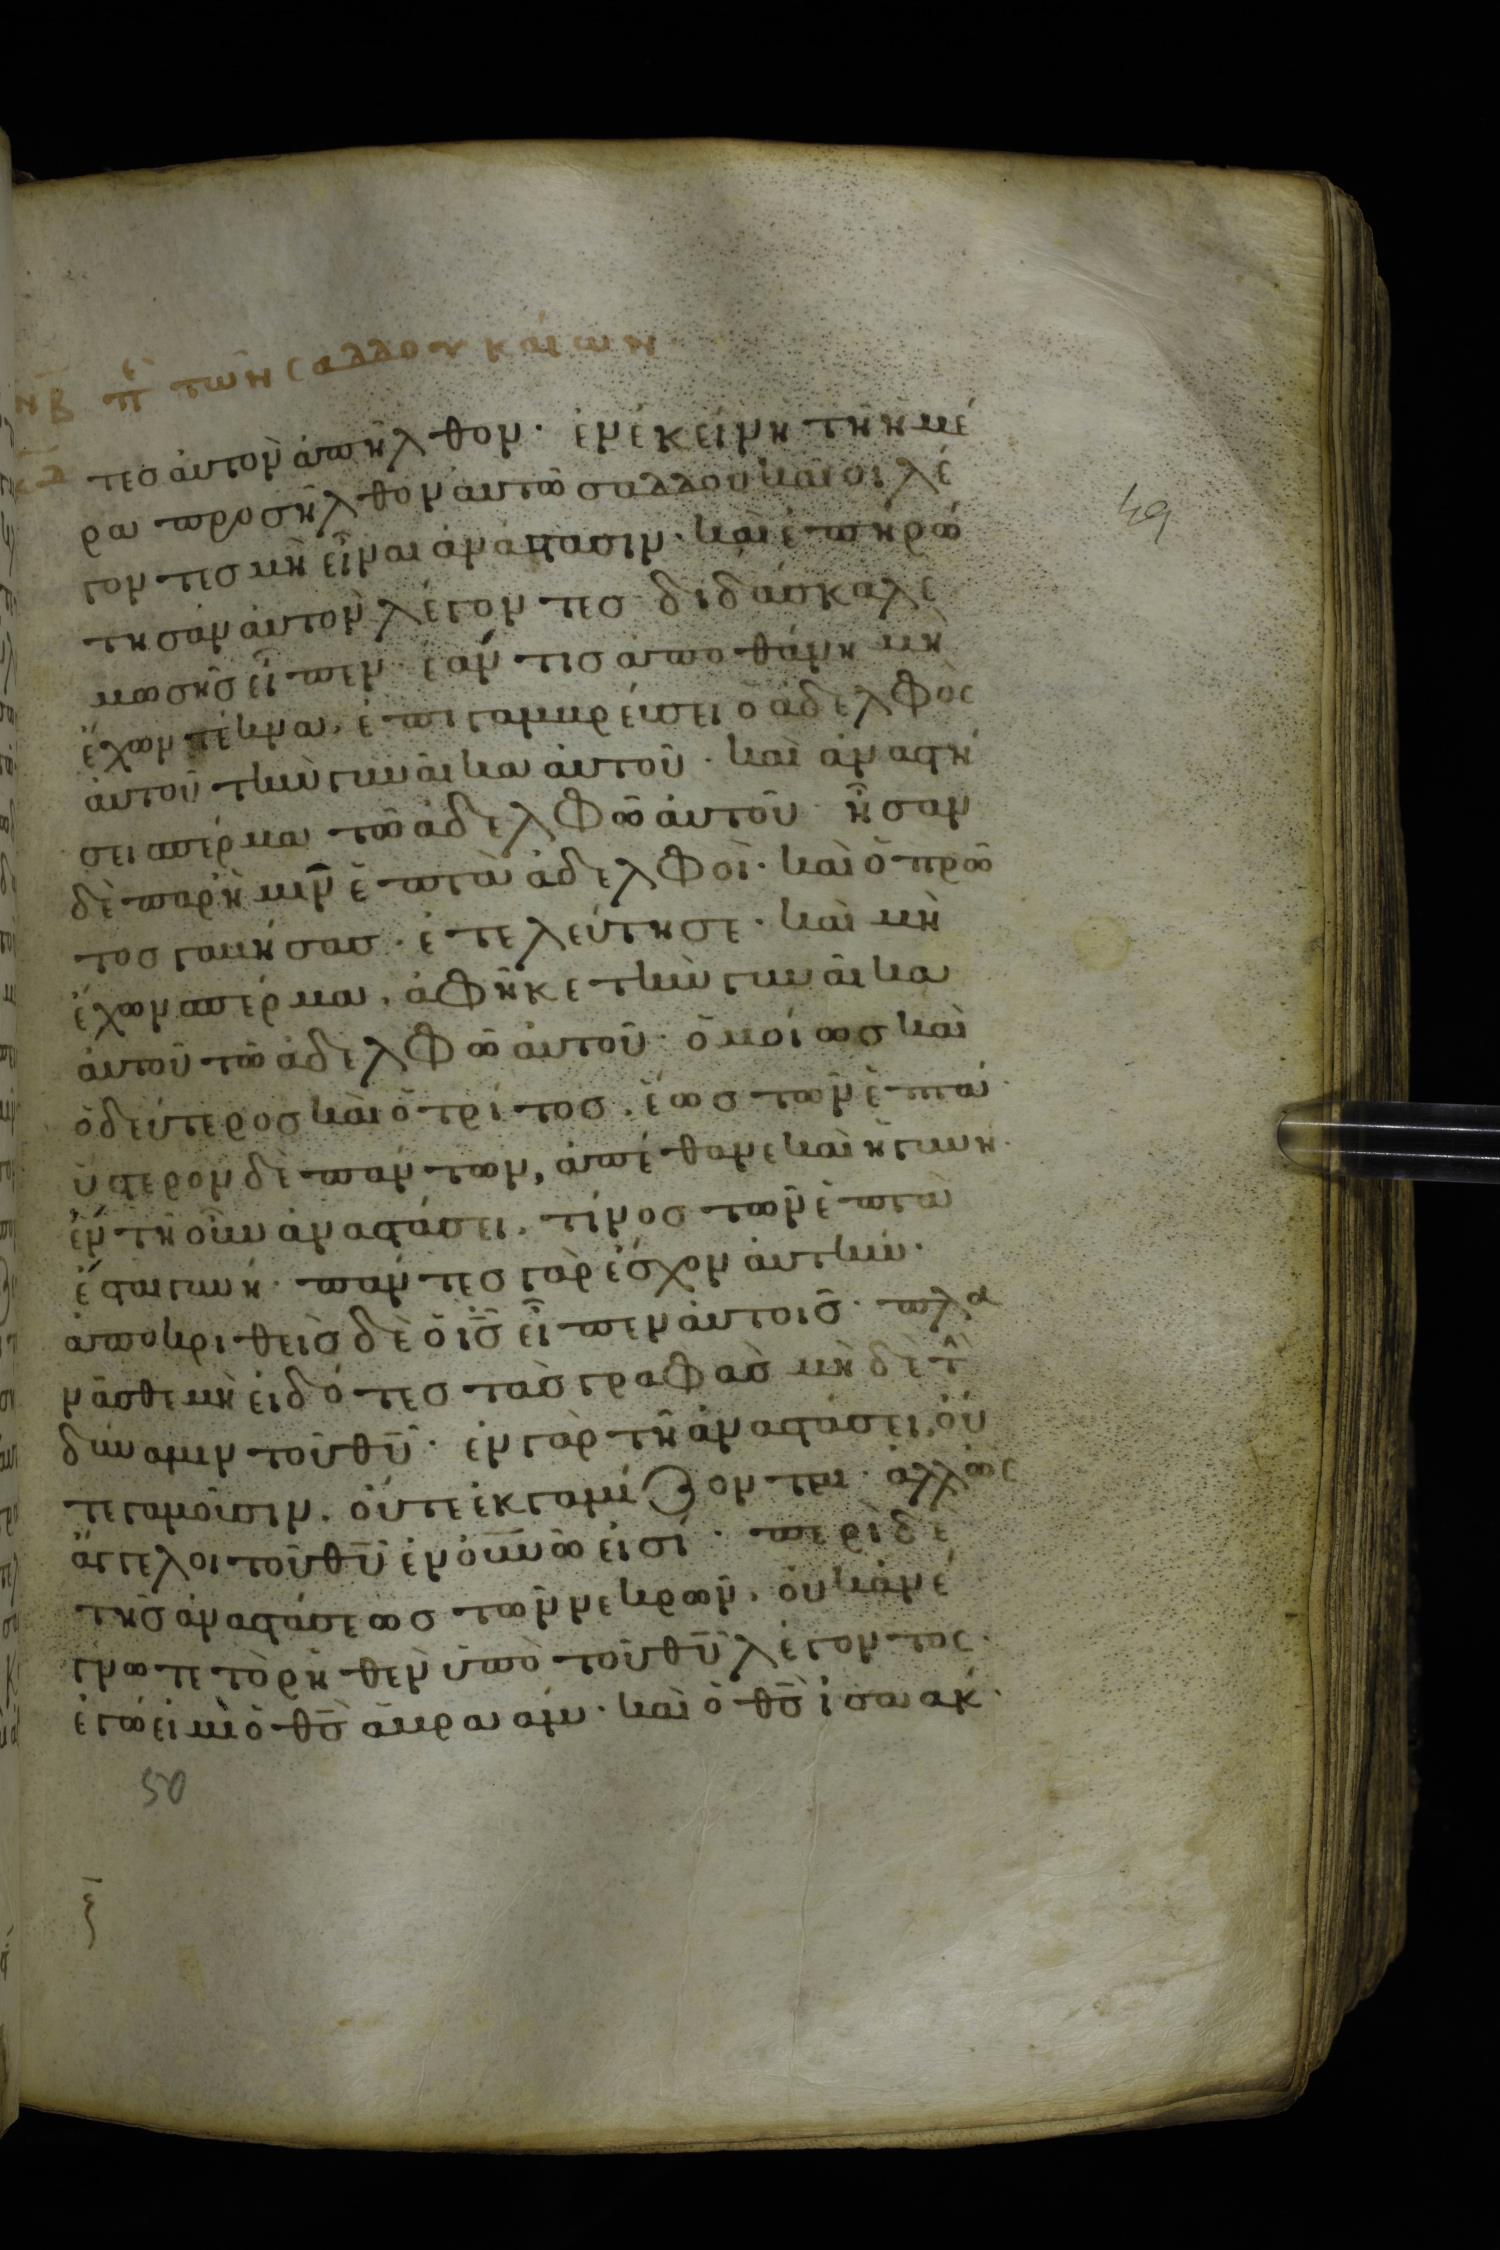 νβ πε τῶν σαδδουκαίων
τες αὐτὸν ἀπῆλθον. ἐν ἐκείνη τῆ ἡμέ
49
ρα προσῆλθον αὐτῶ σαδδουκαῖοι λέ
γοντες μὴ εἶναι ἀνάστασιν. καὶ ἐπηρώ
τησαν αὐτὸν λέγοντες. διδάσκαλε
μωσῆς εἶπεν. ἐάν τις ἀποθάνη μὴ
ἔχων τέκνα, ἐπιγαμβρεύσει ὁ ἀδελφὸς
αὐτοῦ τὴν γυναῖκα αὐτοῦ. καὶ ἀναστή
σει σπέρμα τῶ ἀδελφῶ αὐτοῦ ἦσαν
δὲ παρ' ἡμῖν ἑπτὰ ἀδελφοὶ. καὶ ὁ πρῶ
τος γαμήσας. ἐτελεύτησε. καὶ μὴ
ἔχων σπέρμα, ἀφῆκε τὴν γυναῖκα
αὐτοῦ τῶ ἀδελφῶ αὐτοῦ. ὁμοίως καὶ
ὁ δεύτερος καὶ ὁ τρίτος. ἕως τῶν ἑπτά.
ὕστερον δὲ πάντων, ἀπέθανε καὶ ἡ γυνή.
ἐν τῆ οὖν ἀναστάσει. τίνος τῶν ἑπτὰ
ἔσται γυνή. πάντες γὰρ ἔσχον αὐτήν.
ἀποκριθεὶς δὲ ὁ ις εἶπεν αὐτοῖς. πλα
νᾶσθε μὴ εἰδότες τὰς γραφὰς μὴ δὲ τὴν
δύναμιν τοῦ θυ. ἐν γὰρ τῆ ἀναστάσει οὔ
τε γαμοῦσιν, οὔτε ἐκγαμίζονται. ἀλλ' ὡς
ἄγγελοι τοῦ θυ ἐν οὐνῶ εἰσί. περὶ δὲ
τῆς ἀναστάσεως τῶν νεκρῶν, οὐκ ἀνέ
γνωτε τὸ ῥηθὲν ὑπὸ τοῦ θυ λέγοντος.
ἐγώ εἰμι ὁ θς ἀβραάμ. καὶ ὁ θς ἰσαάκ.
50
ξ